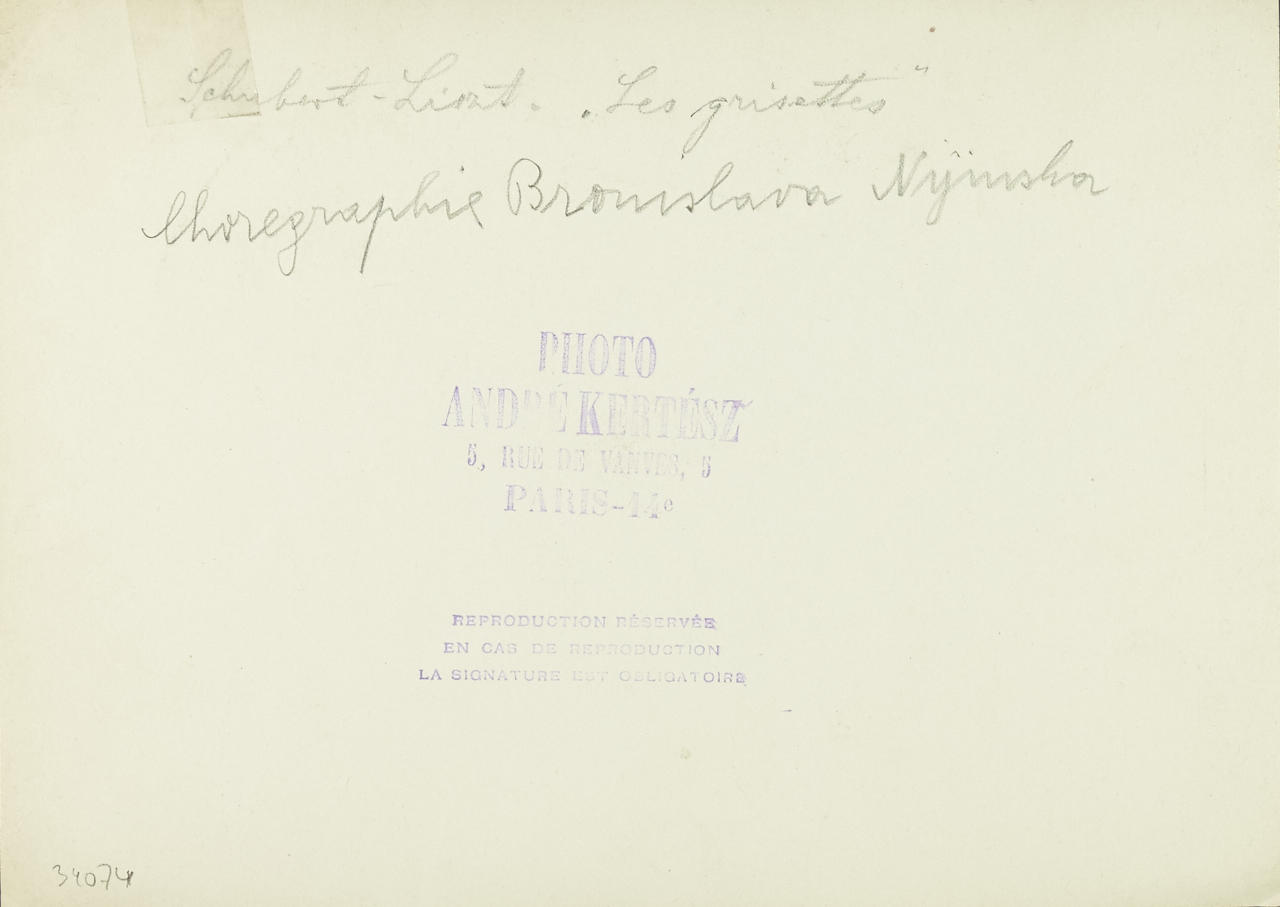 Schubert-Liszt. „Les grisettes"
Choregraphie Bronislava Nÿinska
PHOTO
ANDRÉ KERTÉSZ
5, RUE DE VANVES, 5
PARIS-14e
REPRODUCTION RÉSERVÉE
EN CAS DE REPRODUCTION
LA SIGNATURE EST OBLIGATOIRE
34074